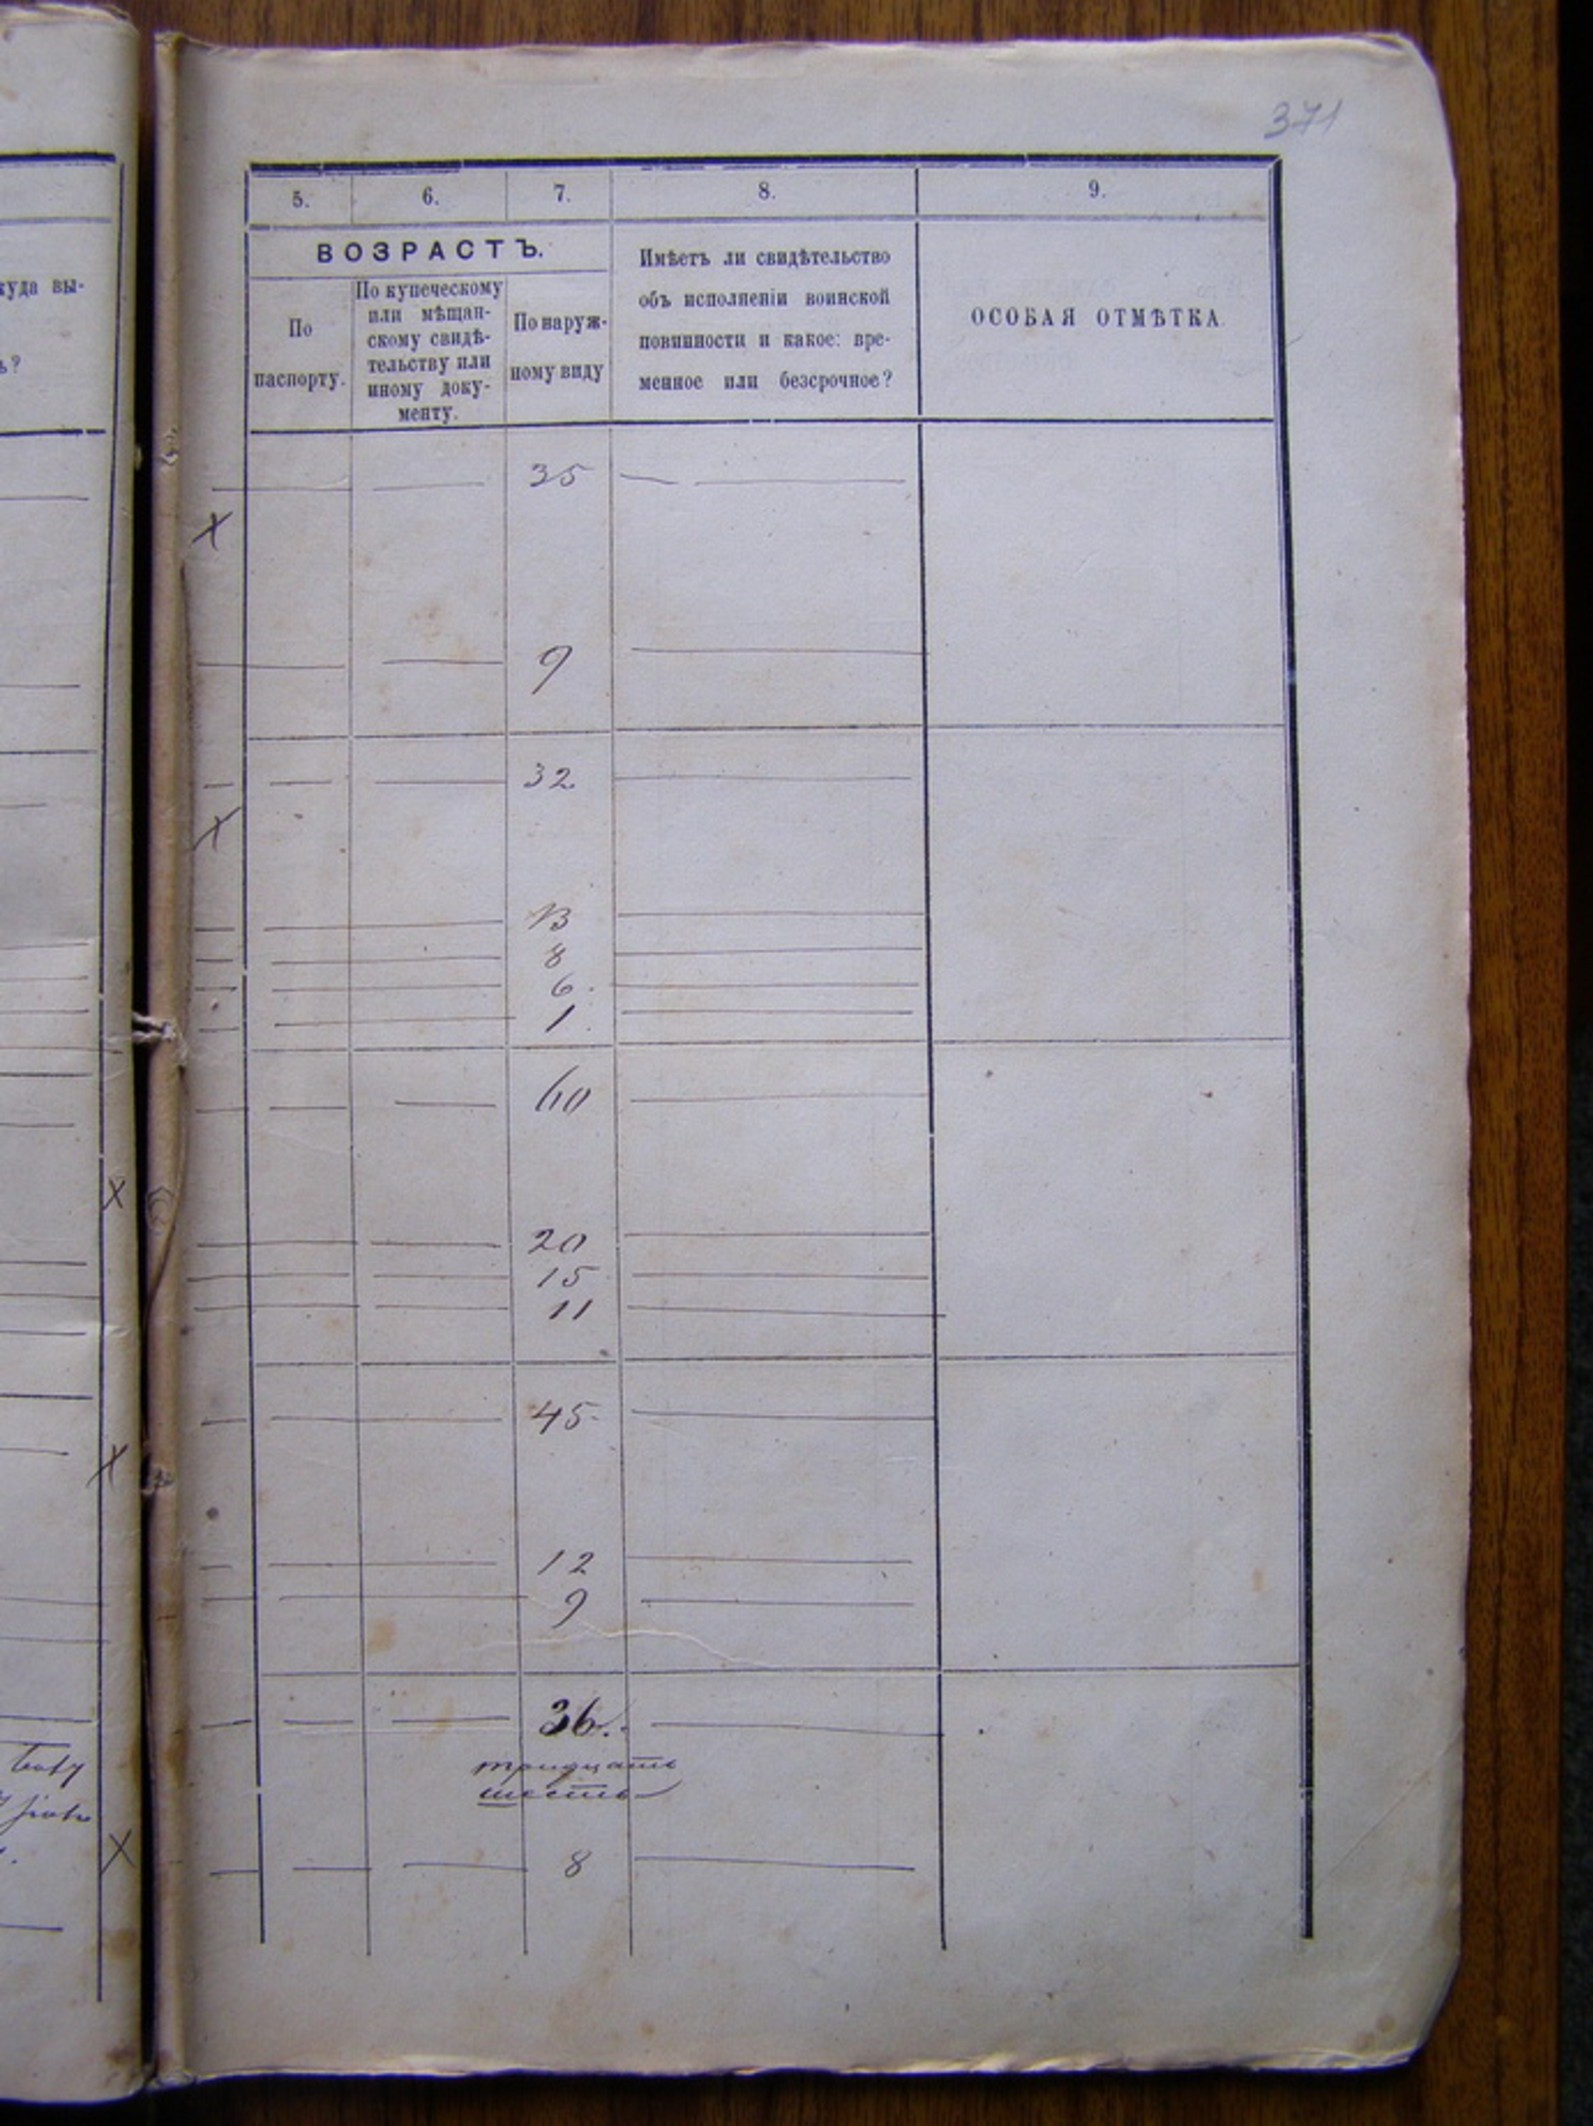 371
5. 6. 7. 8. 9.
ВОЗРАСТЪ.
По
паспорту.
По купеческому
или мѣщан-
скому свидѣ-
тельству или
иному доку-
менту.
По наруж-
ному виду
Имѣетъ ли свидѣтельство
объ исполненіи воинской
повинности и какое: вре-
менное или безсрочное?
ОСОБАЯ ОТМѢТКА.
куда вы-
ь?
35
9
32
13
8
6.
1.
60
20
15
11
45.
12
9
36.
тридцать
шесть
8